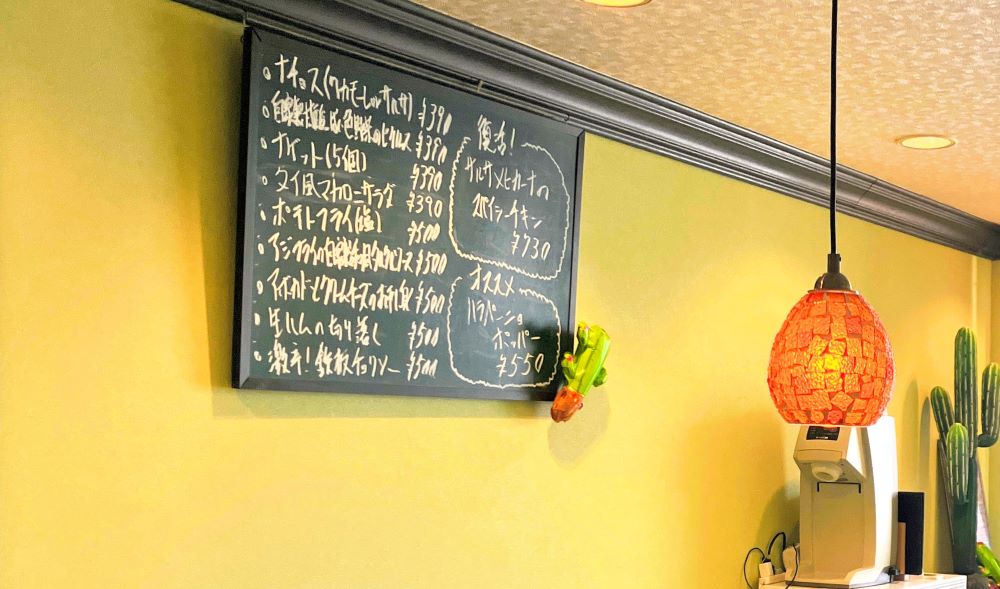 ナチョス(ワカモーレorサルサ) ¥390
自家製塩麹漬け色野菜のピクルス ¥390
ナゲット(5個) ¥390
タイ風マカロニサラダ ¥390
ポテトフライ(塩) ¥500
アジフライの自家製 ソース ¥500
アボカドとクリームチーズの ¥500
生ハムの切り落し ¥500
激辛! ソーセー ¥500
復活!
サルサメヒカーナの
スパイシーチキン
¥730
オススメ
ハラペーニョ
ポッパー
¥550